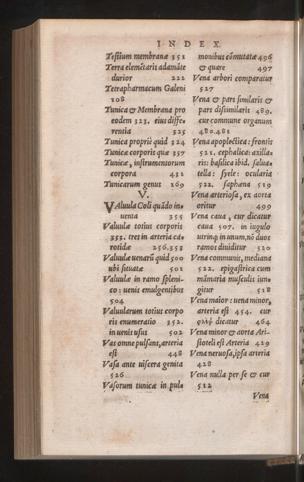 INDEX.
Testium membranæ 351
Terra elemẽtaris adamãte
durior 222
Tetrapharmacum Galeni
108
Tunica & Membrana pro
eodem 323. eius diffe-
rentia 325
Tunica proprii quid 324
Tunica corporis quæ 357
Tunicæ, instrumentorum
corpora 431
Tunicarum genus 269
V.
Valuula Coli quãdo in-
uenta 355
Valuulæ totius corporis
353. tres in arteria ca-
rotidæ 256.358
Valuulæ venarũ quid 500
ubi situatæ 501
Valuulæ in ramo spleni-
co: uenis emulgentibus
504
Valuularum totius corpo
ris enumeratio 352.
in uenis usus 502
Vas omne pulsans, arteria
est 448
Vasa ante uiscera genita
526
Vasorum tunicæ in pul-
monibus cõmutatæ 496
& quare 497
Vena arbori comparatur
527
Vena & pars similaris &
pars dissimilaris 489.
cur commune organum
480.481
Vena apoplectica: frontis
521. cephalica: axilla-
ris: basilica ibid. salua-
tella: syele: ocularia
522. saphena 519
Vena arteriosa, ex aorta
oritur 499
Vena caua, cur dicatur
caua 507. in iugulo
utrinq; in unum, nõ duos
ramos diuiditur 520
Vena communis, mediana
522. epigastrica cum
mãmaria musculis iun-
gitur 518
Vena maior: uena minor,
arteria est 454. cur
dicatur 464
Vena minor & aorta Ari-
stoteli est Arteria 429
Vena neruosa, ipsa arteria
428
Vena nulla per se & cur
512
Vena